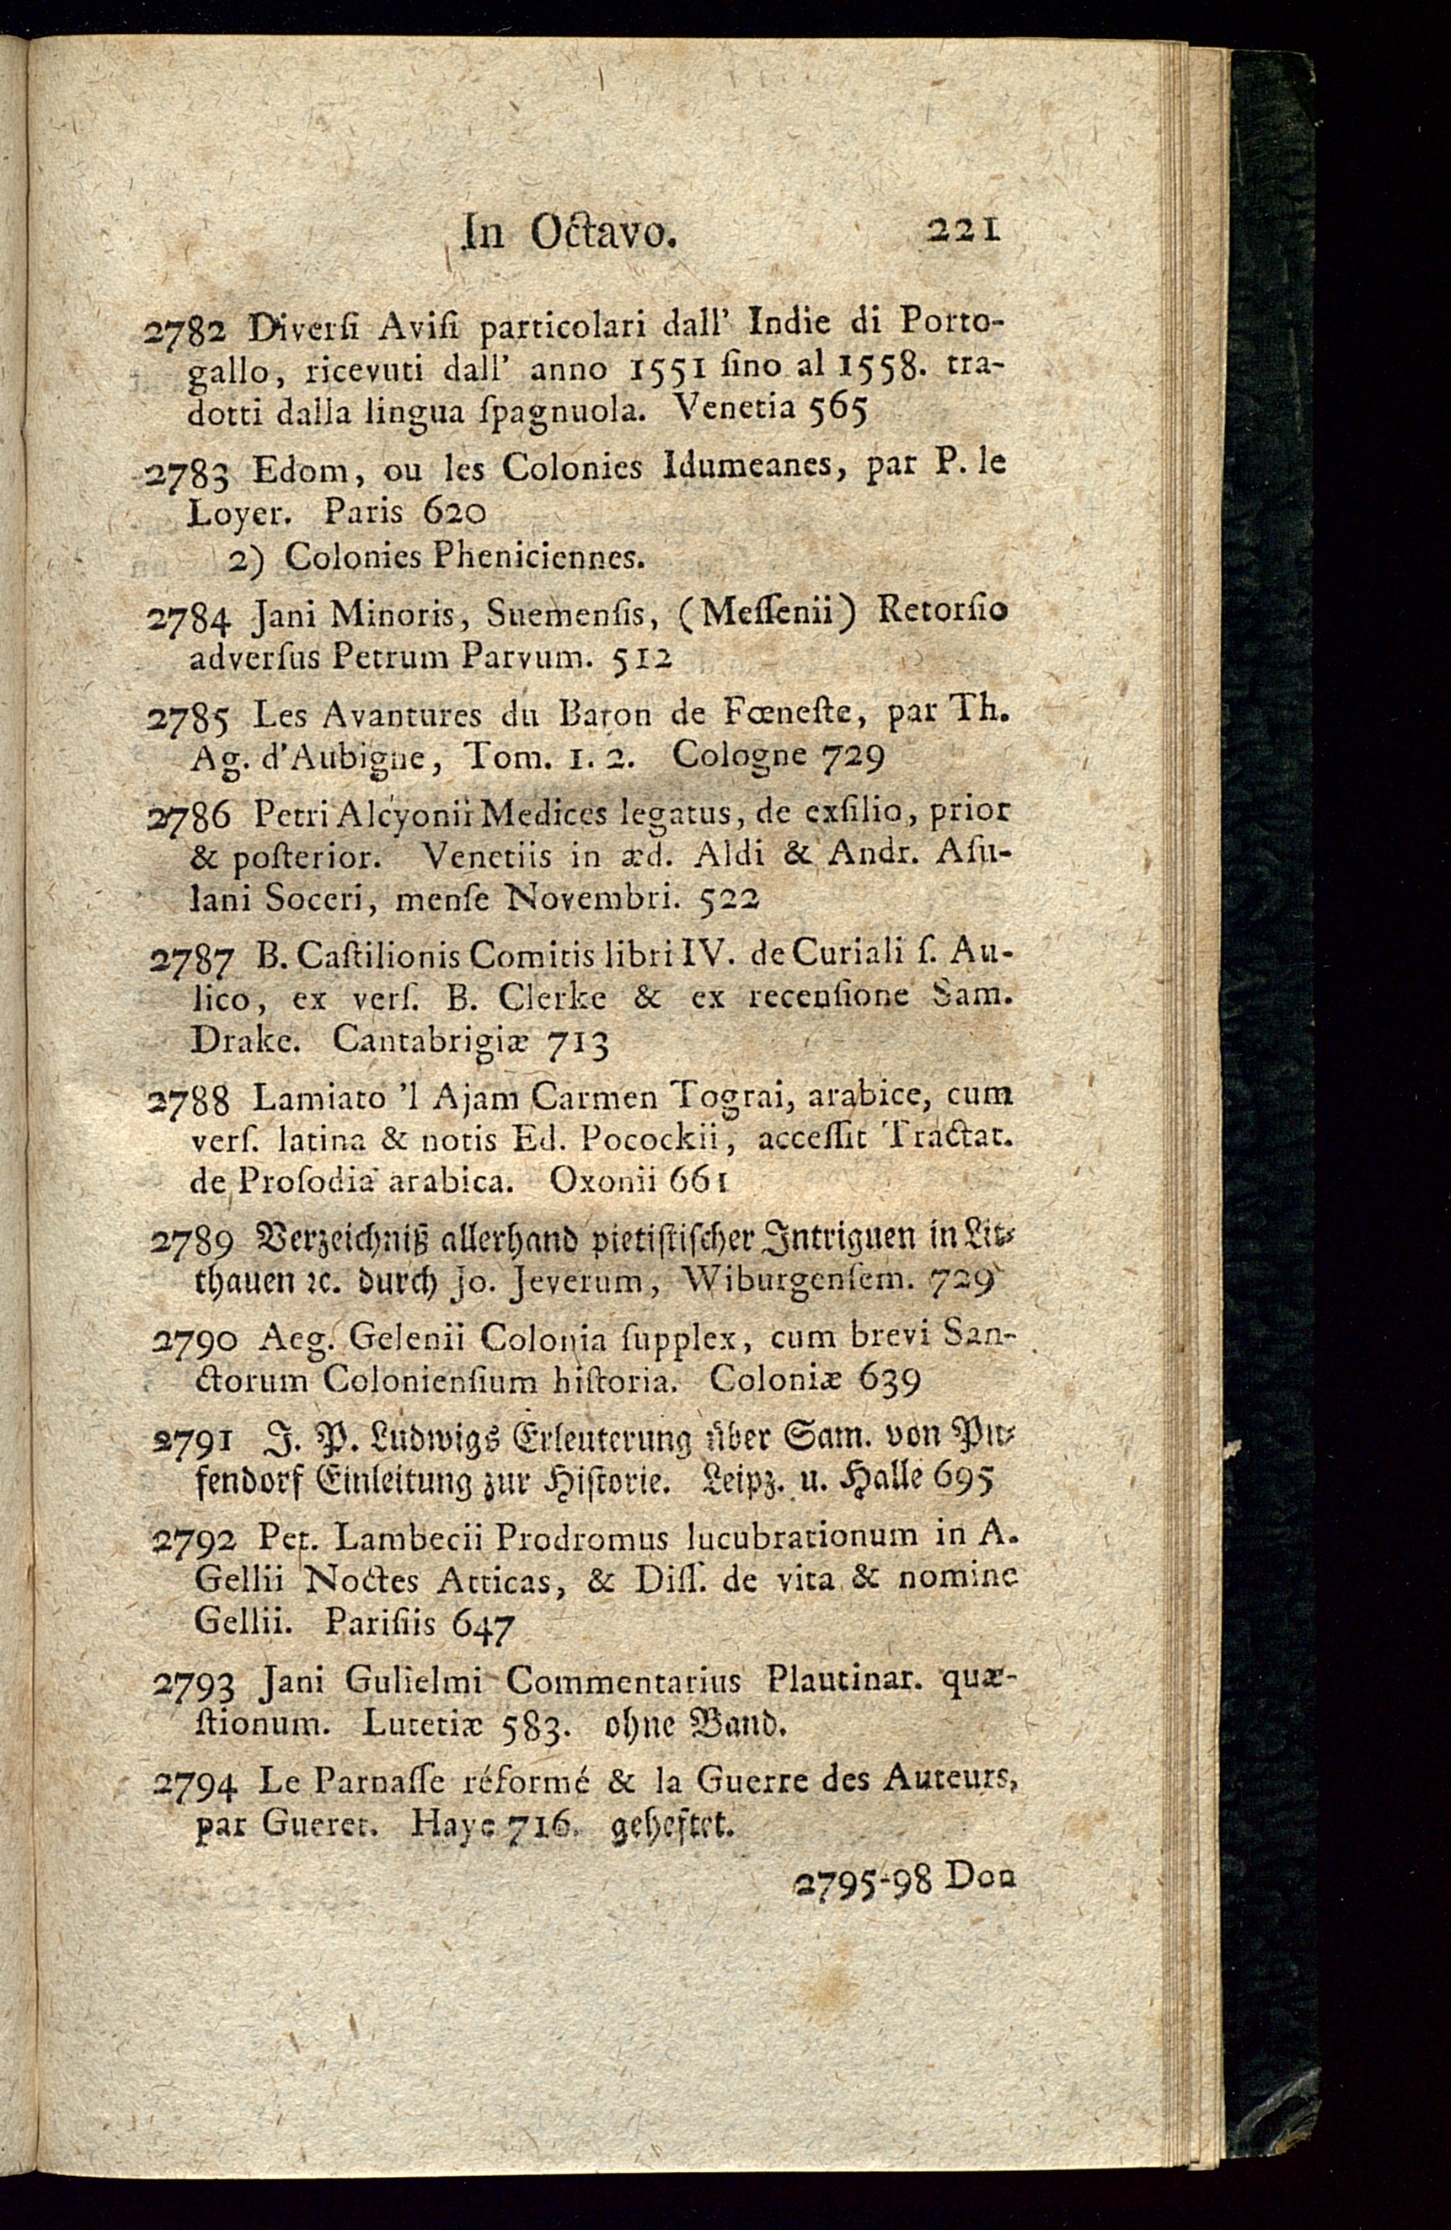 In Octavo. 221
2782 Diverſi Aviſi particolari dall' Indie di Porto-
gallo, ricevuti dall' anno 1551 ſino al 1558. tra-
dotti dalla lingua ſpagnuola. Venetia 565
2783 Edom, ou les Colonies Idumeanes, par P. le
Loyer. Paris 620
2) Colonies Pheniciennes.
2784 Jani Minoris, Suemenſis, (Meſſenii) Retorſio
adverſus Petrum Parvum. 512
2785 Les Avantures du Baron de Fœneſte, par Th.
Ag. d'Aubigne, Tom. 1. 2. Cologne 729
2786 Petri Alcyonii Medices legatus, de exſilio, prior
& poſterior. Venetiis in æd. Aldi & Andr. Aſu-
lani Soceri, menſe Novembri. 522
2787 B. Caſtilionis Comitis libri IV. de Curiali ſ. Au-
lico, ex verſ. B. Clerke & ex recenſione Sam.
Drake. Cantabrigiæ 713
2788 Lamiato 'l Ajam Carmen Tograi, arabice, cum
verſ. latina & notis Ed. Pocockii, acceſſit Tractat.
de Proſodia arabica. Oxonii 661
2789 Verzeichniß allerhand pietiſtiſcher Intriguen in Lit-
thauen ꝛc. durch Jo. Jeverum, Wiburgenſem. 729
2790 Aeg. Gelenii Colonia ſupplex, cum brevi San-
ctorum Colonienſium hiſtoria. Coloniæ 639
2791 J. P. Ludwigs Erleuterung über Sam. von Pu-
fendorf Einleitung zur Hiſtorie. Leipz. u. Halle 695
2792 Pet. Lambecii Prodromus lucubrationum in A.
Gellii Noctes Atticas, & Diſſ. de vita & nomine
Gellii. Pariſiis 647
2793 Jani Gulielmi Commentarius Plautinar. quæ-
ſtionum. Lutetiæ 583. ohne Band.
2794 Le Parnaſſe réformé & la Guerre des Auteurs,
par Gueret. Haye 716. geheftet.
2795-98 Don